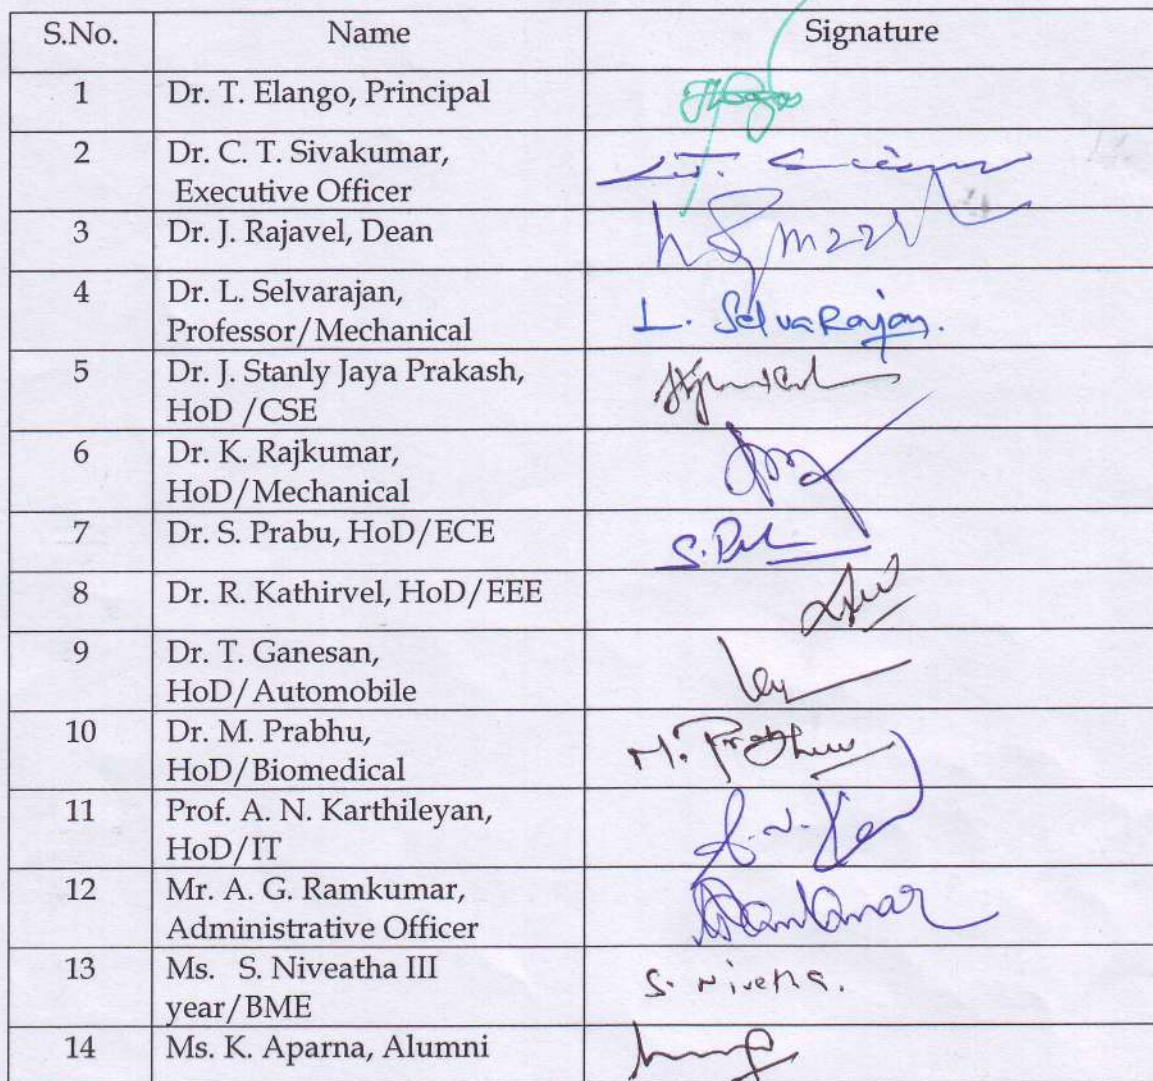 S.No. Name Signature
1 Dr. T. Elango, Principal
2 Dr. C. T. Sivakumar,
Executive Officer
3 Dr. J. Rajavel, Dean
4 Dr. L. Selvarajan, L. Selvarajan.
Professor/Mechanical
5 Dr. J. Stanly Jaya Prakash,
HoD /CSE
6 Dr. K. Rajkumar,
HoD/Mechanical
7 Dr. S. Prabu, HoD/ECE
8 Dr. R. Kathirvel, HoD/EEE
9 Dr. T. Ganesan,
HoD/Automobile
10 Dr. M. Prabhu, M. Prabhu
HoD/Biomedical
11 Prof. A. N. Karthileyan,
HoD/IT
12 Mr. A. G. Ramkumar,
Administrative Officer
13 Ms. S. Niveatha III S. Nivetha.
year/BME
14 Ms. K. Aparna, Alumni